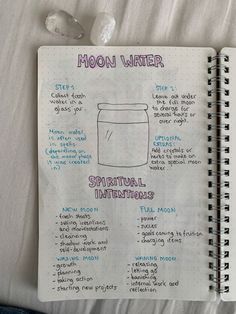 MOON WATER
STEP 1
Collect fresh
water in a
glass jar
Moon water
is often used
in spells
(depending on
the moon phase
it was created
in)
STEP 2
Leave out under
the full moon
to charge for
several hours
or over night.
OPTIONAL
EXTRAS:
Add crystals or
herbs to make an
extra special moon
water
SPIRITUAL
INTENTIONS
NEW MOON
- fresh starts
- setting intentions
and manifestations
- cleansing
- shadow work and
self-development
FULL MOON
- power
- success
- goals coming to fruition
- charging items
WAXING MOON
- growth
- planning
- taking action
- starting new projects
WANING MOON
- releasing
- letting go
- banishing
- internal work and
reflection